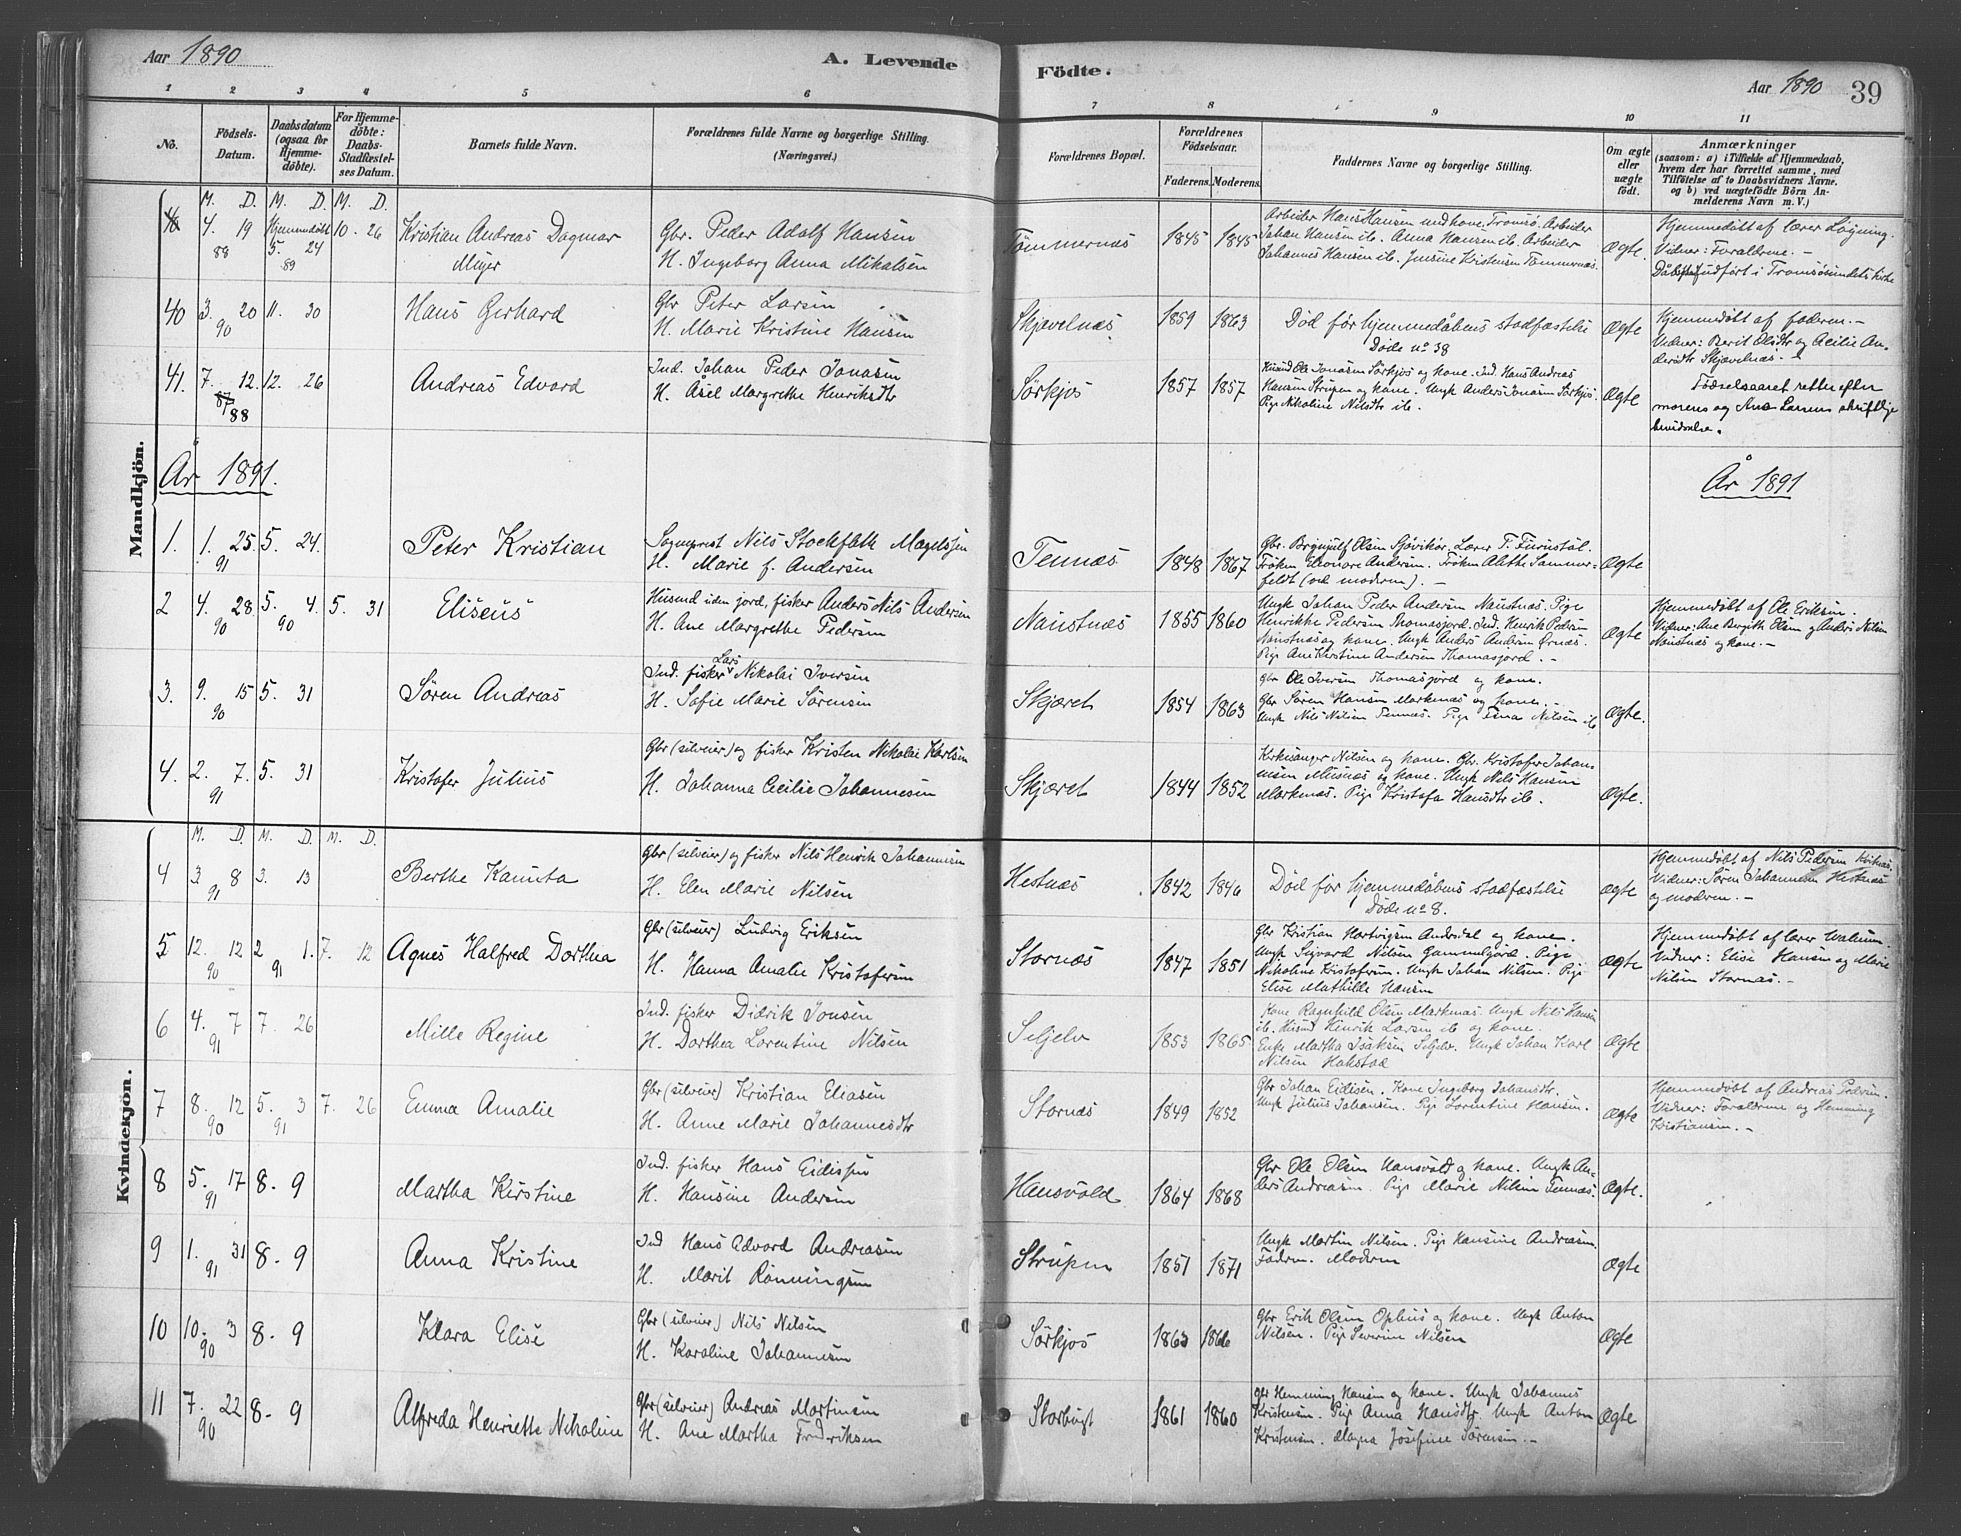 Aar 1890
A. Levende
1 2 3 4 5 6
No.
Födsels-Datum.
Daabsdatum (ogsaa for Hjemmedöbte).
For Hjemmedöbte: Daabs-Stadfæstelses Datum.
Barnets fulde Navn.
Forældrenes fulde Navne og borgerlige Stilling. (Næringsvei.)
Födte.
Aar 1890 39
7 8 9 10 11
Forældrenes Bopæl.
Forældrenes Födselsaar.
Faderens. Moderens.
Faddernes Navne og borgerlige Stilling.
Om ægte eller uægte födt.
Anmærkninger
(saasom: a) i Tilfælde af Hjemmedaab,
hvem der har forrettet samme, med
Tilföielse af to Daabsvidners Navne,
og b) ved uægtefödte Börn Anmelderens Navn m. V.)
Mandkjön.
M. D. M. D. M. D.
4. 19 88 Hjemmedøbt 5. 24 89 10 - 26 Kristian Andreas Dagmar Meyer
Gbr. Peder Adolf Hansen
H. Ingeborg Anna Mikalsen
Tømmernæs 1845 1845
Arbeider Hans Hansen med kone Tromsø. Arbeider
Johan Hansen ib. Anna Hansen ib. Arbeider
Johannes Hansen ib. Jensine Kristensen Tømmernæs.
Ægte.
Hjemmedøbt af lærer Løgning.
Vidner: Forældrene. -
udført i Tromsøsundets kirke
40 3. 20 90 11. 30 Hans Gerhard
Gbr Peter Larsen
H. Marie Kristine Hansen
Skjævelnæs 1859 1863
Død før hjemmedåbens stadfæstelse
Døde no 38
Ægte
Hjemmedøbt af faderen. -
Vidner: Berit Olsdtr og Cecilie An-
dersdtr Skjævelnæs.
41. 7. 12. 87 88 12. 26 Andreas Edvard
Ind. Johan Peder Jonasen
H. Åsel Margrethe Henriksdtr
Sørkjos 1857 1857
Husmd Ole Jonasen Sørkjos og kone. Ind. Hans Andreas
Hansen Strupen og kone. Ungk Anders Jonasen Sørkjos.
Pige Nikoline Nilsdtr ib.
Ægte
Fødselsaaret rettet efter
moderens og Ane Larsens skriftlige
bevidnelse.
År 1891.
År 1891
1. 1. 25. 91 5. 24. Peter Kristian
Sogneprest Nils Stockfleth Magelssen
H. Marie f. Andersen
Tennæs 1848 1867
Gbr. Brynjulf Olsen Sjøvikør. Lærer T. Furustøl.
Frøken Eleonore Andersen. Frøken Alethe Sammer-
feldt (ved moderen). -
Ægte
2 4. 28. 90 5. 4. 90 5. 31 Eliseus
Husmd uden jord, fisker Anders Nils Andersen
H. Ane Margrethe Pedersen
Naustnæs 1855 1860
Ungk Johan Peder Andersen Naustnæs. Pige
Henrikke Pedersen Thomasjord. Ind. Henrik Pedersen
Naustnæs og kone. Ungk Anders Andersen Ørnæs.
Pige Ane Kirstine Andersen Thomasjord. -
Ægte
Hjemmedøbt af Ole Eriksen.
Vidner: Ane Bergith Olsen og Anders Nilsen
Naustnæs og kone. -
3. 9. 15 90 5. 31 Søren Andreas
Ind. fisker Lars Nikolai Iversen
H. Sofie Marie Sørensen
Skjæret 1854 1863
Gbr Ole Iversen Thomasjord og kone.
Gbr Søren Hansen Markenæs og kone. -
Ungk Nils Nilsen Tennæs. Pige Tina Nilsen ib
Ægte.
4. 2. 7. 91 5. 31 Kristofer Julius
Gbr (selveier) og fisker Kristen Nikolai Karlsen
H. Johanna Cecilie Johannesen
Skjæret 1844 1852
Kirkesanger Nilsen og kone. Gbr. Kristofer Johan-
nesen og kone. Ungk Nils Hansen
Markenæs. Pige Kristofa Hansdtr ib.
Ægte.
Kvindekjön.
M. D. M. D. M. D.
4 3 8 91 3. 13 Berthe Kanuta
Gbr (selveier) og fisker Nils Henrik Johannesen
H. Elen Marie Nilsen
Hestnæs 1842 1846
Død før hjemmedåbens stadfæstelse
Døde no 8.
Ægte
Hjemmedøbt af Nils Pedersen Kvitnæs.
Vidner: Søren Johannesen Hestnæs
og moderen. -
5 12. 12 90 2 1. 91 7. 12 Agnes Halfred Dorthea
Gbr (selveier) Ludvig Eriksen
H. Hanna Amalie Kristofersen
Stornæs 1847 1851
Gbr Kristian Hartvigsen Andersdal og kone.
Ungk Sigvard Nilsen Gammelgård. Pige
Nikoline Kristofersen. Ungk Johan Nilsen. Pige
Elise Mathilde Hansen
Ægte
Hjemmedøbt af lærer
Vidner: Elise Hansen og Marie
Nilsen Stornæs. -
6 4. 7 91 7. 26 Mille Regine
Ind. fisker Didrik Jonsen
H. Dorthea Lorentine Nilsen
Seljelv 1853 1865
Kone Ragnhild Olsen Markenæs. Ungk Nils Hansen
ib. Husmd Henrik Larsen ib og kone.
Enke Martha Isaksen Seljelv. Ungk Johan Karl
Nilsen Hakstad
Ægte
7 8. 12 90 5. 3 91 7. 26 Emma Amalie
Gbr (selveier) Kristian Eliasen
H. Anne Marie Johannesdtr
Stornæs 1849 1852
Gbr Johan Eidisen. Kone Ingeborg Johansdtr.
Ungk Julius Johansen. Pige Lorentine Hansen.
Ægte
Hjemmedøbt af Andreas Pedersen.
Vidner: Forældrene og Hemming
Kristiansen. -
8 5. 17 91 8. 9 Martha Kirstine
Ind. fisker Hans Eidissen
H. Hansine Andersen
Hansvold 1864 1868
Gbr Ole Olsen Hansvold og kone. Ungk An-
ders Andreasen. Pige Marie Nilsen Tennæs.
Ægte.
9 1. 31 91 8. 9 Anna Kristine
Ind Hans Edvard Andreasen
H. Marit Rønningsen
Strupen 1851 1871
Ungk Martin Nilsen. Pige Hansine Andreasen.
Faderen. Moderen
Ægte
10 10. 3 90 8. 9 Klara Elise
Gbr (selveier) Nils Nilsen
H. Karoline Johannesen
Sørkjos 1863 1866
Gbr Erik Olsen Ophus og kone. Ungk Anton
Nilsen. Pige Severine Nilsen
Ægte
11 7. 22 90 8. 9 Alfreda Henriette Nikoline
Gbr (selveier) Andreas Martinsen
H. Ane Martha Fredriksen
Storbugt 1861 1860
Gbr Hemming Hansen og kone. Ungk Johannes
Kristensen. Pige Anna Hansdtr. Ungk Anton
Kristensen. Magna Josefine Sørensen. -
Ægte